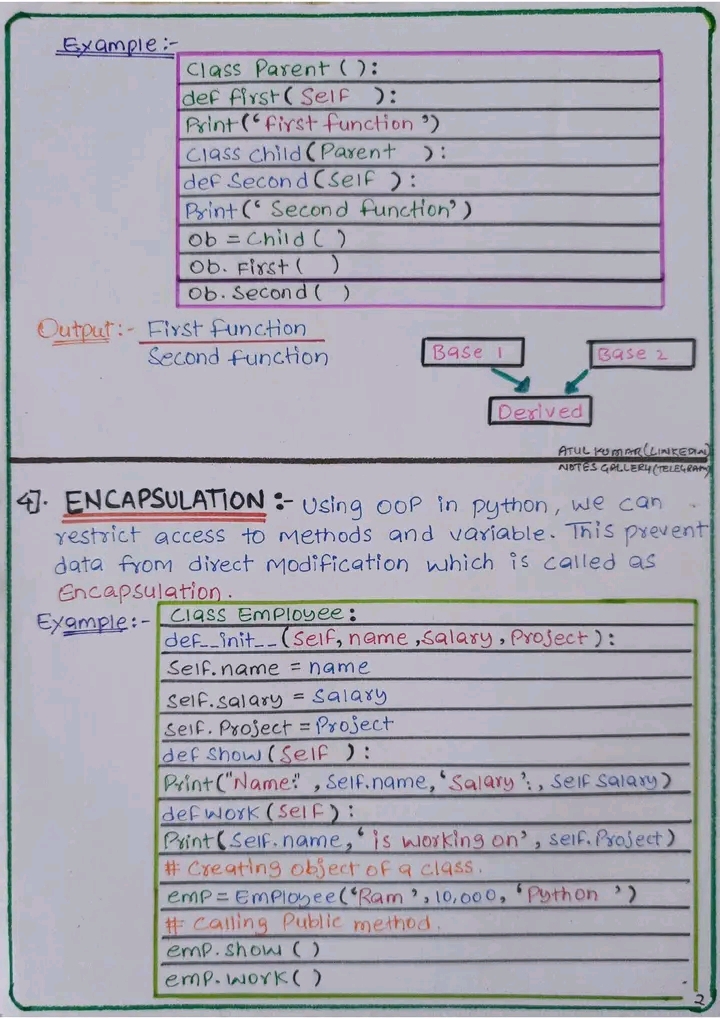 Example:-
Class Parent ( ):
def first( Self ):
Print(‘first function’)
Class child(Parent ):
def Second(Self ):
Print(‘ Second function’)
Ob = Child ( )
Ob. First ( )
Ob. Second ( )
Output:- First function
Second function
Base 1
Base 2
Derived
ATUL KUMAR(LINKEDIN)
NOTES GALLERY(TELEGRAM)
4]. ENCAPSULATION :- Using OOP in python, we can
restrict access to methods and variable. This prevent
data from direct modification which is called as
Encapsulation.
Example:-
Class Employee:
def__init__(Self, name, Salary, Project):
Self.name = name
Self.salary = Salary
Self. Project = Project
def show (Self ):
Print("Name:" , Self.name, ‘Salary’:, Self Salary)
def work (Self):
Print(Self.name, ‘ is working on’, self.Project)
# Creating object of a class.
emp = Employee(‘Ram’, 10,000, ‘Python ’)
# Calling Public method.
emp. show ( )
emp. work ( )
2